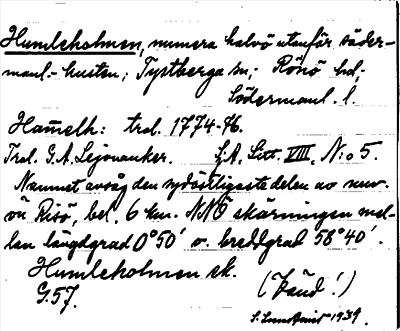 Humleholmen, numera halvö utanför söder-
manl.-kusten; Tystberga sn; Rönö hd,
Södermanl. l.
Hamelh: trol. 1774-76.
Trol. G.A. Lejonanker. L.A. Litt. VIII, N:o 5.
Namnet avsåg den sydöstligaste delen av nuv.
ön Risö, bel. 6 km. NNÖ skärningen mel-
lan längdgrad 0°50' o. breddgrad 58°40'.
Humleholmen sk.
G.57. (Känd!)
S. Lundqvist 1939.